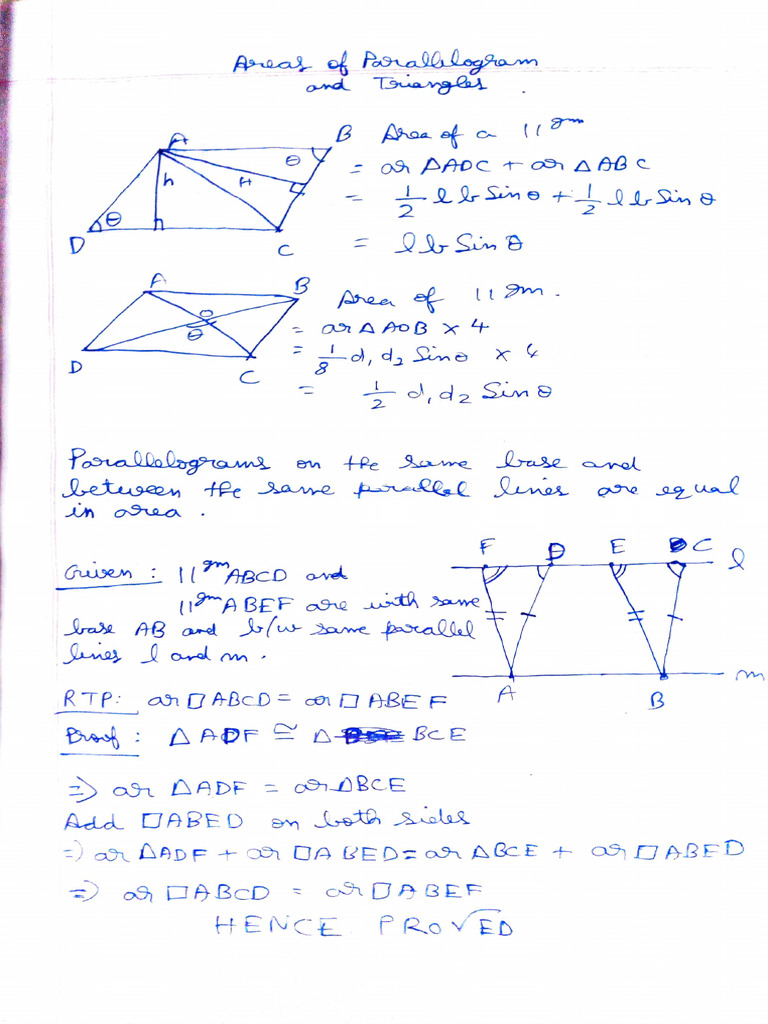 Areas of Parallelogram
and Triangles.
A
B
θ
h
H
θ
D
C
Area of a 11gm
= ar ΔADC + ar ΔABC
= 1/2 l b Sin θ + 1/2 l b Sin θ
= l b Sin θ
A
B
θ
θ
D
C
Area of 11gm.
= ar ΔAOB × 4
= 1/8 d1 d2 Sin θ × 4
= 1/2 d1 d2 Sin θ
Parallelograms on the same base and
between the same parallel lines are equal
in area.
F D E C l
A B m
Given : 11gm ABCD and
11gm ABEF are with same
base AB and b/w same parallel
lines l and m.
RTP: ar □ ABCD = ar □ ABEF
Proof : Δ ADF ≅ Δ BCE
=> ar ΔADF = ar ΔBCE
Add □ABED on both sides
=> ar ΔADF + ar □ABED = ar ΔBCE + ar □ABED
=> ar □ABCD = ar □ABEF
HENCE PROVED